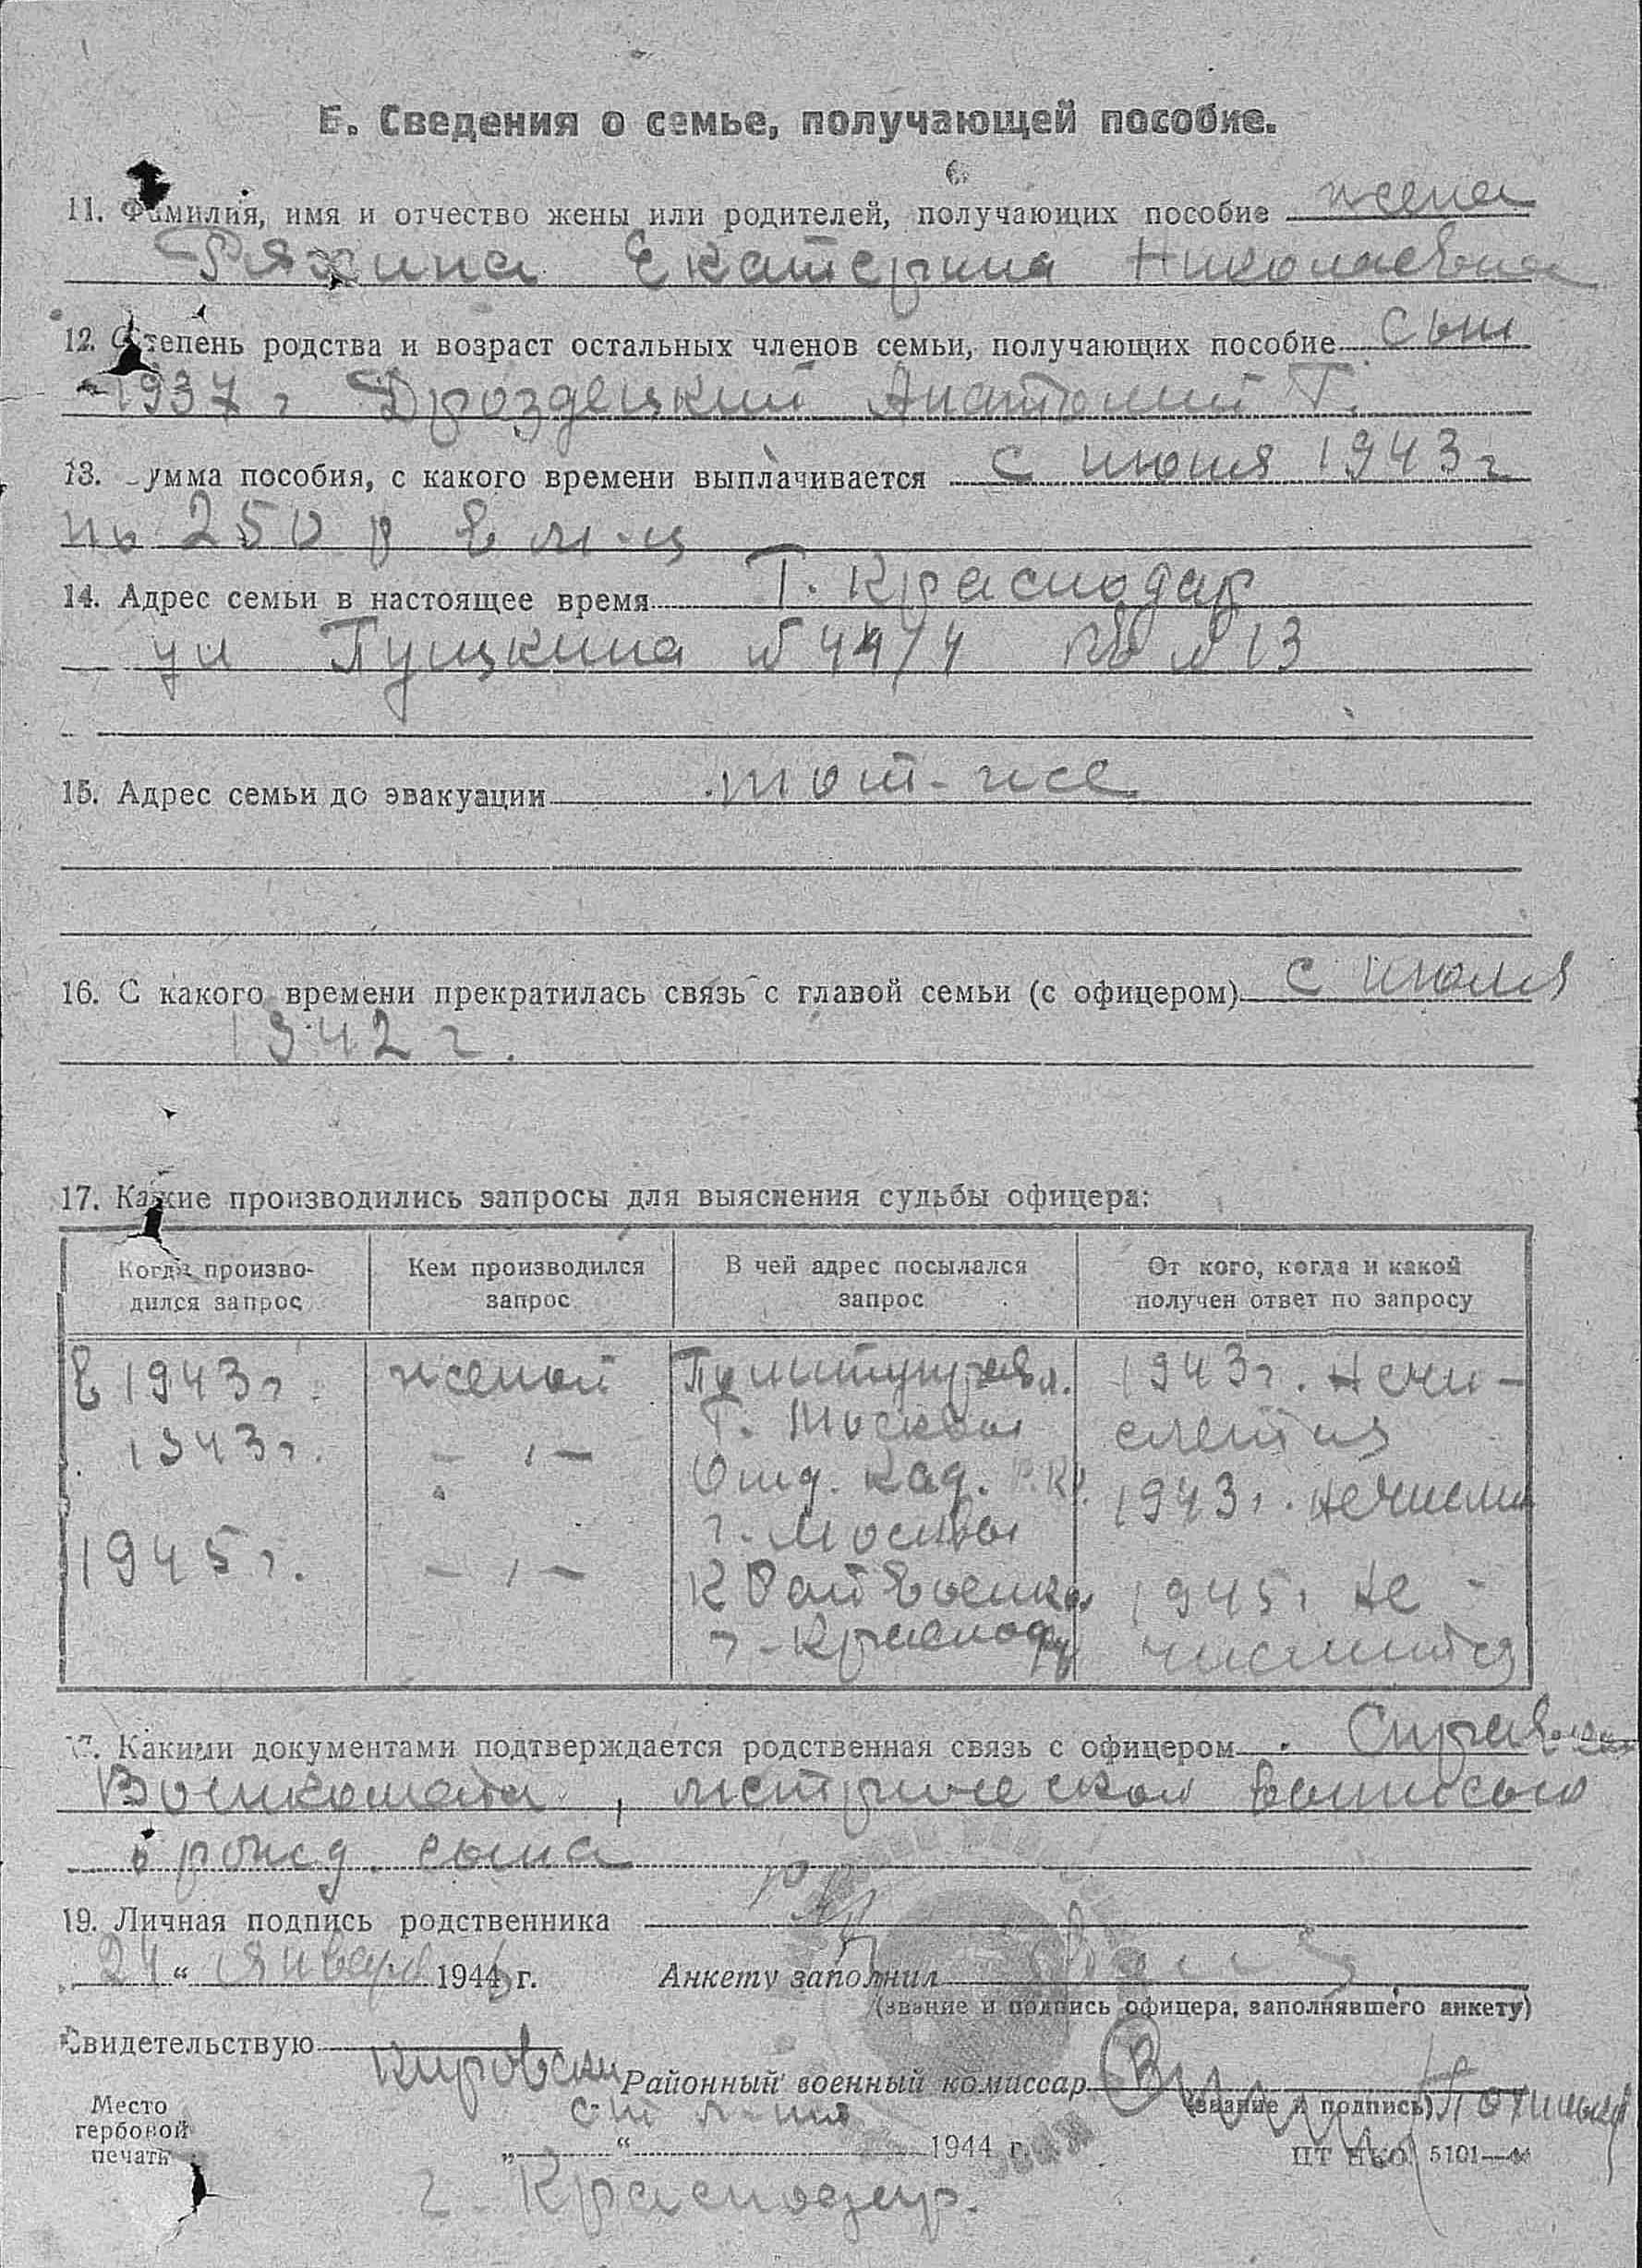 Б. Сведения о семье, получающей пособие.
11. Фамилия, имя и отчество жены или родителей, получающих пособие жена
Ряхина Екатерина Николаевна
12. Степень родства и возраст остальных членов семьи, получающих пособие сын
-1937 г Дроздецкий Анатолий Г.
13. умма пособия, с какого времени выплачивается с июня 1943 г
по 250 р в м-ц
14. Адрес семьи в настоящее время г. Краснодар
ул Пушкина № 44/4 кв № 13
15. Адрес семьи до эвакуации тот-же
16. С какого времени прекратилась связь с главой семьи (с офицером) с июля
1942 г.
17. Какие производились запросы для выяснения судьбы офицера:
Когда произво-
дился запрос
Кем производился
запрос
В чей адрес посылался
запрос
От кого, когда и какой
получен ответ по запросу
в 1943 г.
женой
г. Москвы
1943 г. нечи-
слется
1943 г.
- " -
Отд. кад.
г. Москвы
1943 г. нечисли
1945 г.
- " -
г. Краснодар
1945 г не
числится
Какими документами подтверждается родственная связь с офицером
Военкомата, метрической выписью
о рожд. сына
19. Личная подпись родственника
24 " января 1945 г.
Анкету заполнил
(звание и подпись офицера, заполнявшего анкету)
Свидетельствую
Кировский
Районный военный комиссар
(звание и подпись)
Место
гербовой
печати
" " 1944 г.
ПТ НКО 5101—44
г. Краснодар.